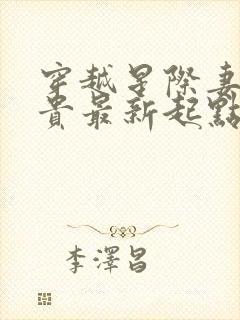 穿越星際妻
貴最新起點
李澤昌